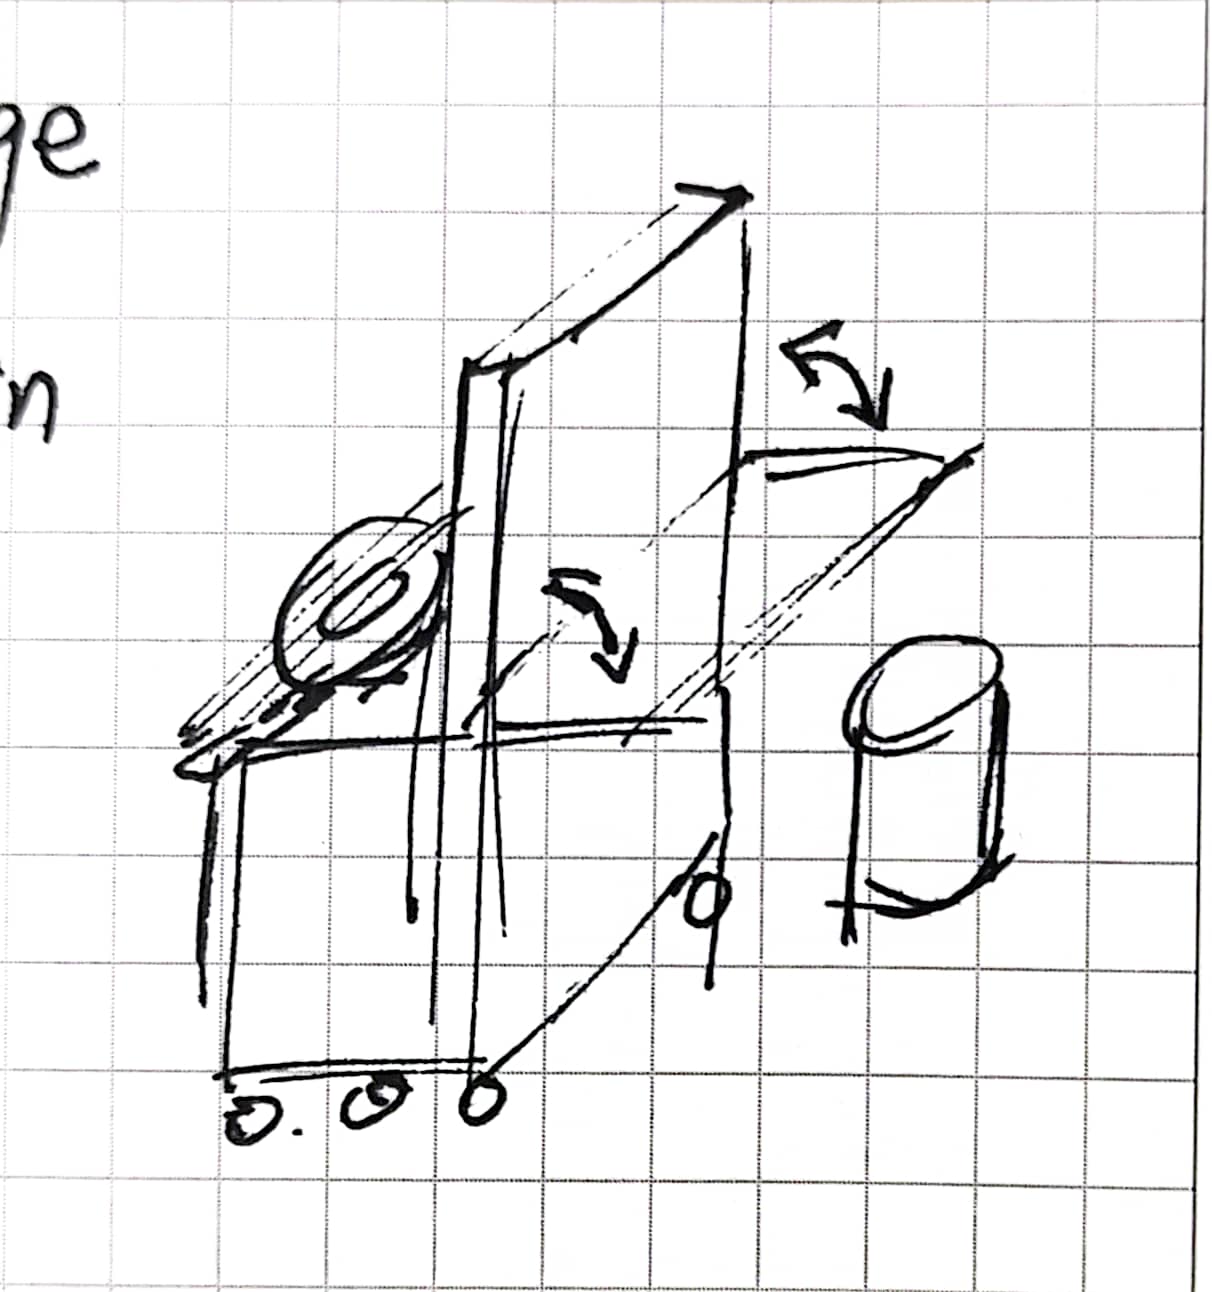 ge
n